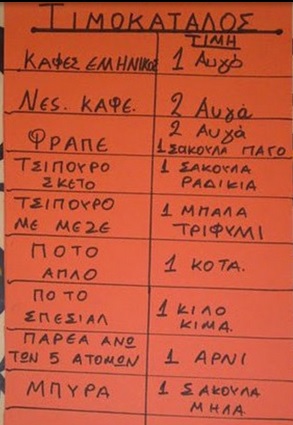 ΤΙΜΟΚΑΤΑΛΟΣ
ΤΙΜΗ
ΚΑΦΕΣ ΕΛΗΝΙΚΟΣ 1 Αυγό
ΝΕS. ΚΑΦΕ. 2 Αυγά
ΦΡΑΠΕ 2 Αυγά
1 ΣΑΚΟΥΛΑ ΠΑΓΟ
ΤΣΙΠΟΥΡΟ ΣΚΕΤΟ 1 ΣΑΚΟΥΛΑ
ΡΑΔΙΚΙΑ
ΤΣΙΠΟΥΡΟ
ΜΕ ΜΕΖΕ 1 ΜΠΑΛΑ
ΤΡΙΦΥΛΛΙ
ΠΟΤΟ
ΑΠΛΟ 1 ΚΟΤΑ.
ΠΟΤΟ
ΣΠΕΣΙΑΛ 1 ΚΙΛΟ
ΚΙΜΑ.
ΠΑΡΕΑ ΑΝΩ
ΤΩΝ 5 ΑΤΟΜΩΝ 1 ΑΡΝΙ
ΜΠΥΡΑ 1 ΣΑΚΟΥΛΑ
ΜΗΛΑ